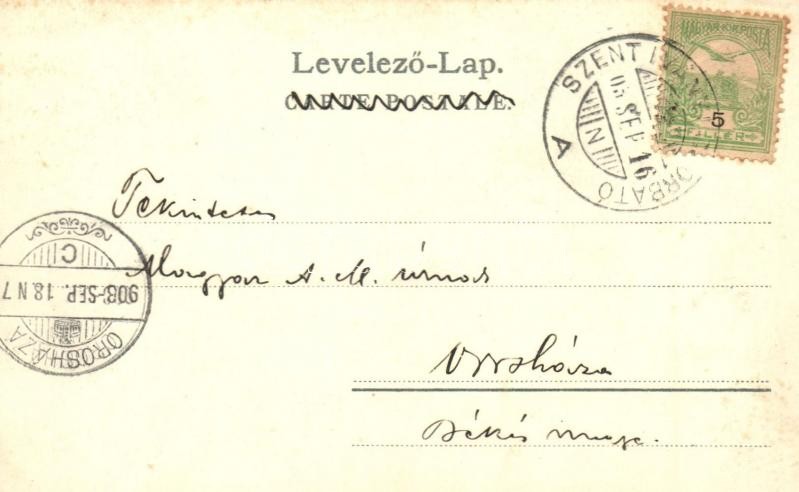 Levelező-Lap.
CARTE POSTALE.
MAGYAR·KIR·POSTA
5
FILLÉR
SZENT IVÁNY
ORBATÓ
SEP 16
N
A
Tekintetes
Magyar A. M. úrnak
Orosháza
Békés megye.
C
SEP. 18 N 7
OROSHÁZA